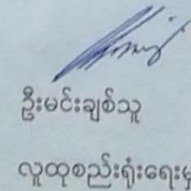 ဦးမင်းချစ်သူ
လူထုစည်းရုံးရေးမှ